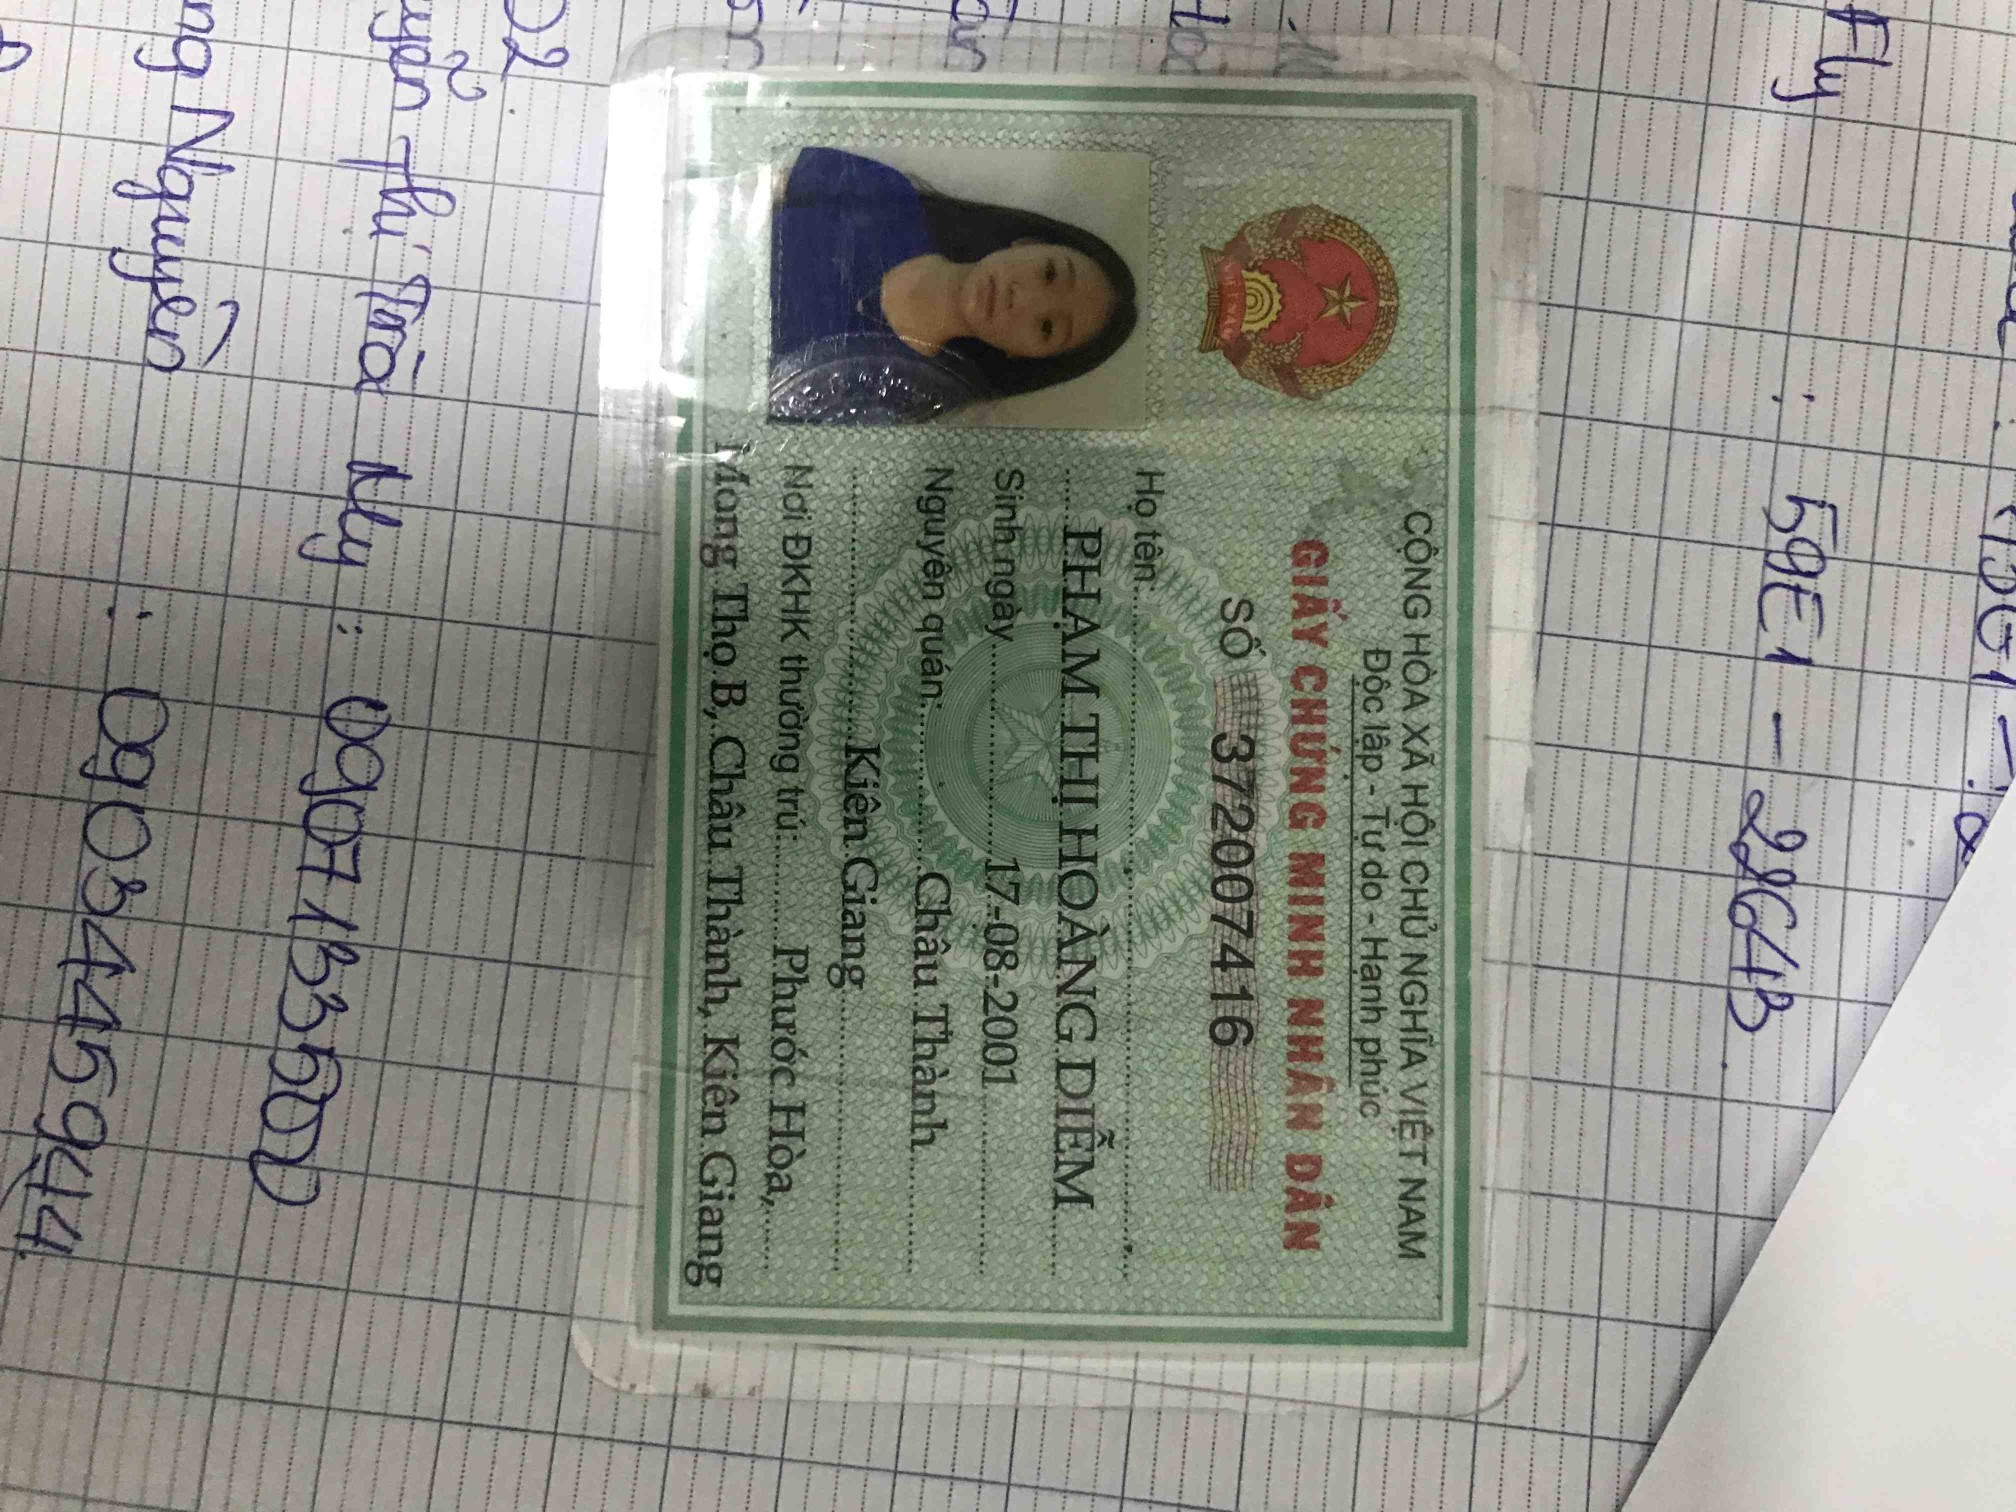 CỘNG HÒA XÃ HỘI CHỦ NGHĨA VIỆT NAM
Độc lập - Tự do - Hạnh phúc
GIẤY CHỨNG MINH NHÂN DÂN
SỐ 372007416
Họ tên:
PHẠM THỊ HOÀNG DIỄM
Sinh ngày 17-08-2001
Nguyên quán: Châu Thành
Kiên Giang
Nơi ĐKHK thường trú: Phước Hòa,
Mong Thọ B, Châu Thành, Kiên Giang
VIỆT NAM
Fly : 59E1 - 22643
D2
Thị Trúc Ly : 0907133500
Nguyên : 0903445944